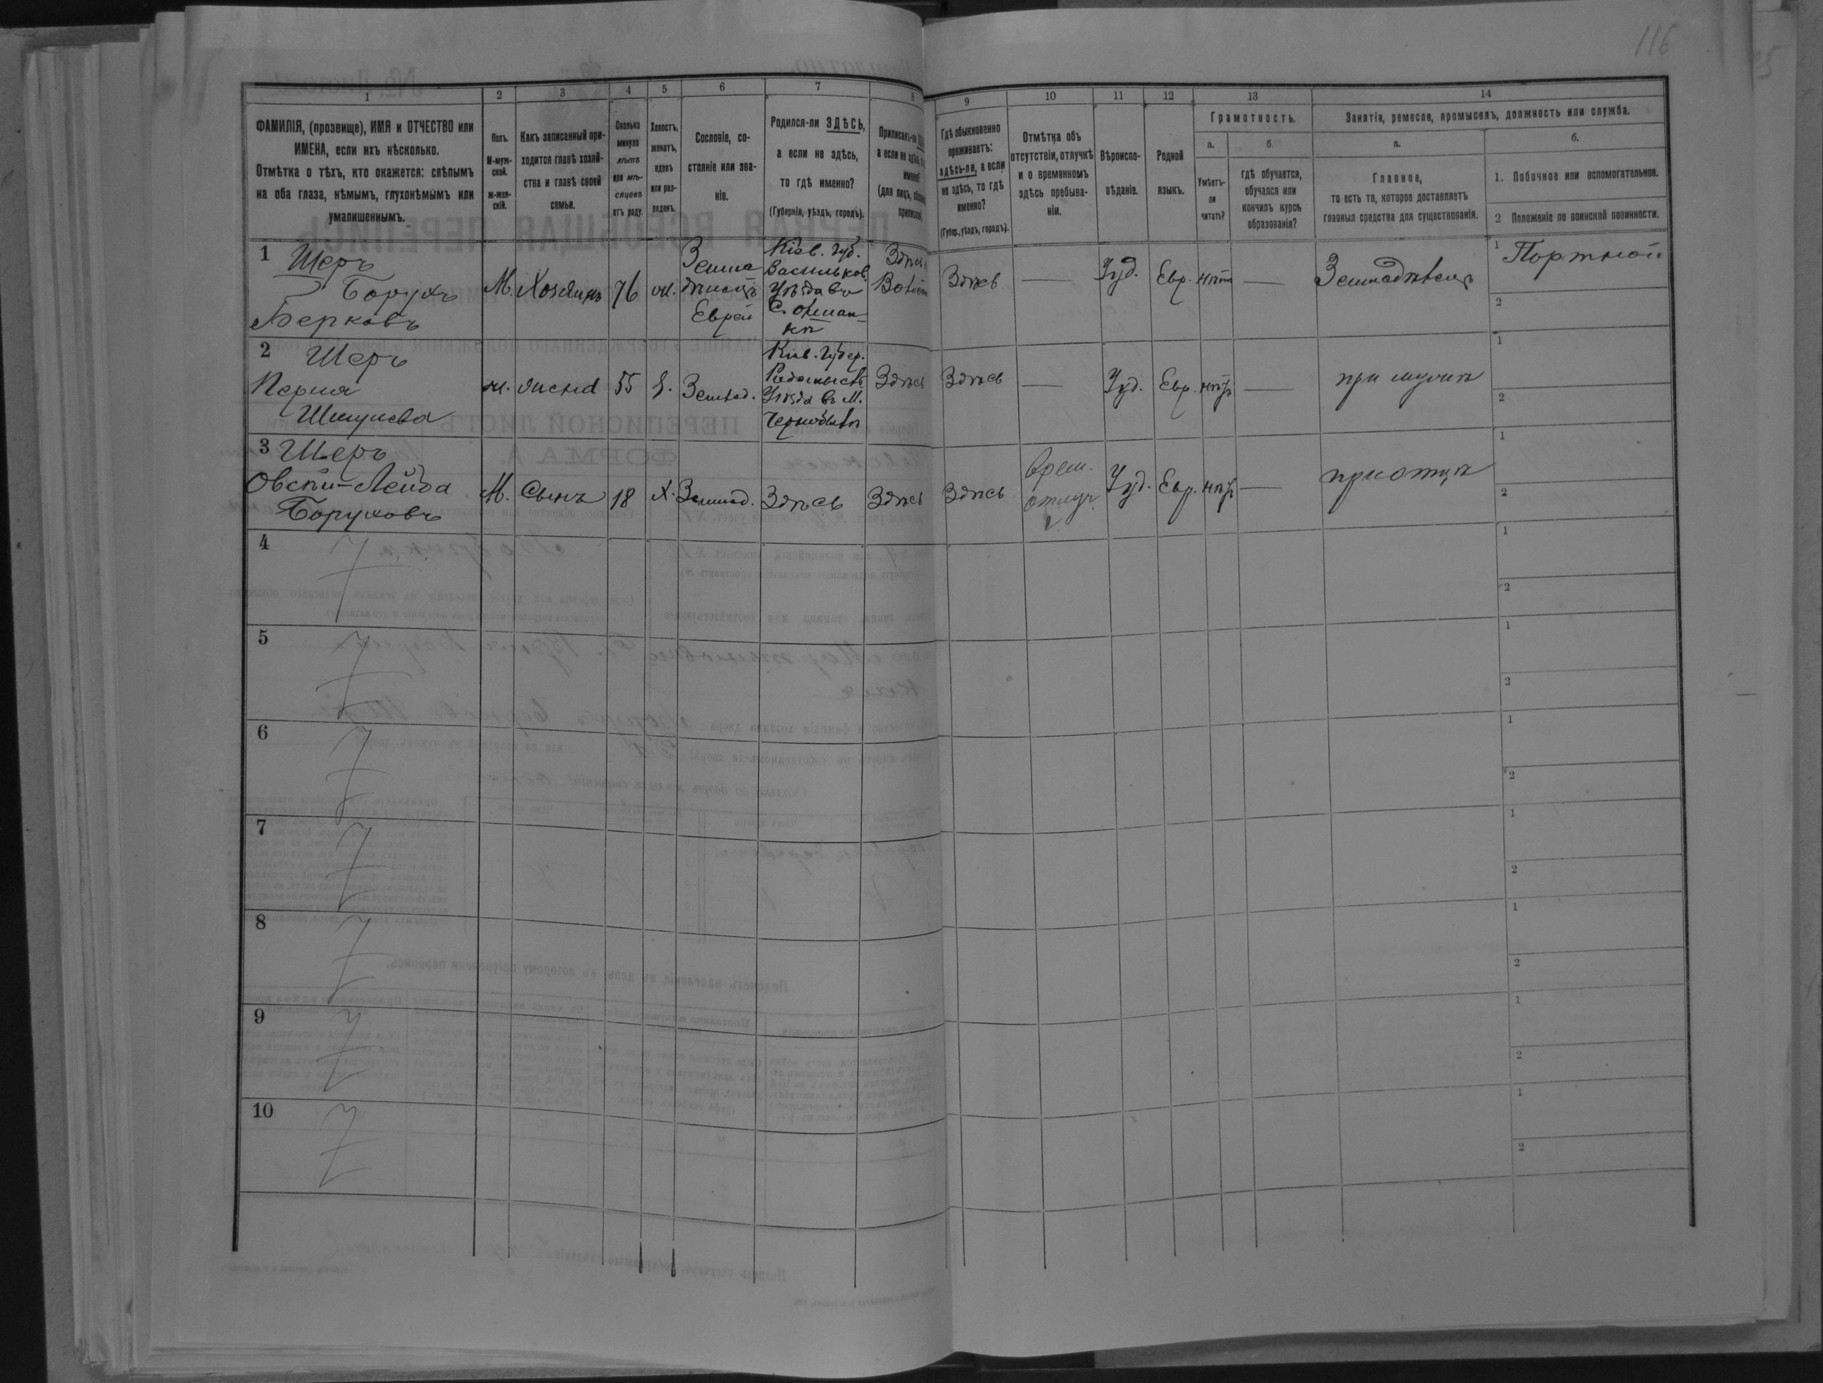 116
1 2 3 4 5 6 7 8 9 10 11 12 13 14
ФАМИЛІЯ, (прозвище), ИМЯ и ОТЧЕСТВО или
ИМЕНА, если ихъ нѣсколько.
Отмѣтка о тѣхъ, кто окажется: слѣпымъ
на оба глаза, нѣмымъ, глухонѣмымъ или
умалишеннымъ.
Полъ.
М-муж-
ской.
ж-жен-
скій.
Какъ записанный при-
ходится главѣ хозяй-
ства и главѣ своей
семьи.
Сколько
минуло
лѣтъ
или мѣ-
сяцевъ
отъ роду.
Холостъ,
женатъ,
вдовъ
или раз-
веденъ.
Сословіе, со-
стояніе или зва-
ніе.
Родился-ли ЗДѢСЬ,
а если не здѣсь,
то гдѣ именно?
(Губернія, уѣздъ, городъ).
Приписанъ-ли
а если не здѣсь,
(для лицъ,
Гдѣ обыкновенно
проживаетъ:
здѣсь-ли, а если
не здѣсь, то гдѣ
именно?
(Губер., уѣздъ, городъ).
Отмѣтка объ
отсутствіи, отлучкѣ
и о временномъ
здѣсь пребыва-
ніи.
Вѣроиспо-
вѣданіе.
Родной
языкъ.
Грамотность.
а. б.
Умѣетъ-
ли
читать?
гдѣ обучается,
обучался или
кончилъ курсъ
образованія?
Занятія, ремесло, промыселъ, должность или служба.
а. б.
Главное,
то есть то, которое доставляетъ
главныя средства для существованія.
1. Побочное или вспомогательное.
2 Положеніе по воинской повинности.
1 Шеръ
Борухъ
Берковъ
М. Хозяинъ 76
Земле
дѣлецъ
Еврей
Кіев. Губ.
Васильков
Уѣзда въ
Здѣсь — Іуд. Евр. нѣтъ — Земледѣлецъ
1 Портной
2
2 Шеръ
Перля
Шмулева
жена 55 З. Землед.
Кіев. Губер.
Радомысл.
Уѣзда въ М.
Чернобыль
Здѣсь Здѣсь — Іуд. Евр. нѣтъ — при мужѣ
1
2
3 Шеръ
Овсѣй-Лейба
Боруховъ
М. Сынъ 18 Х. Землед. Здѣсь Здѣсь Здѣсь
Врем.
отлуч.
Іуд. Евр. нѣтъ — при отцѣ
1
2
4
1
2
5
1
2
6
1
2
7
1
2
8
1
2
9
1
2
10
1
2